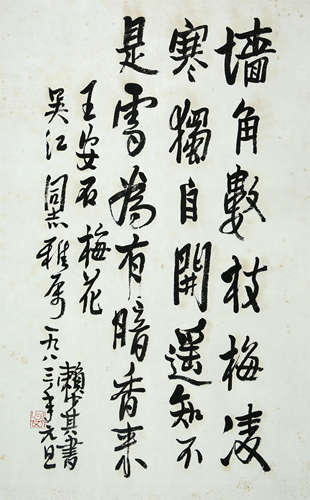 墙角數枝梅凌
寒獨自開遥知不
是雪為有暗香来
王安石梅花
吴江同志雅属
一九八三年元旦
賴少其書